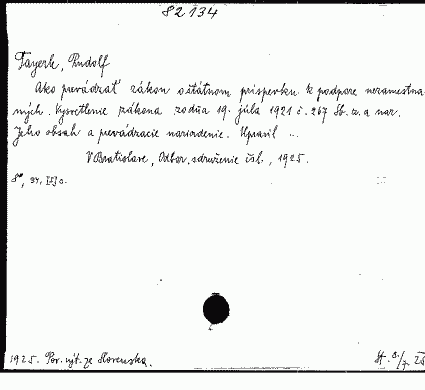 82134
Tayerk, Rudolf
Ako prevádzať zákon o štátnom príspevku k podpore nezamestna-
ných. Vysvetlenie zákona zo dňa 19. júla 1921 č. 267 Sb. z. a nar.
Jeho obsah a prevádzacie nariadenie. Upravil ...
V Bratislave, Odbor. sdruženie čsl., 1925.
8°, 34, [I] s.
1925. Pov. výt. ze Slovenska.
St. 8/7 25